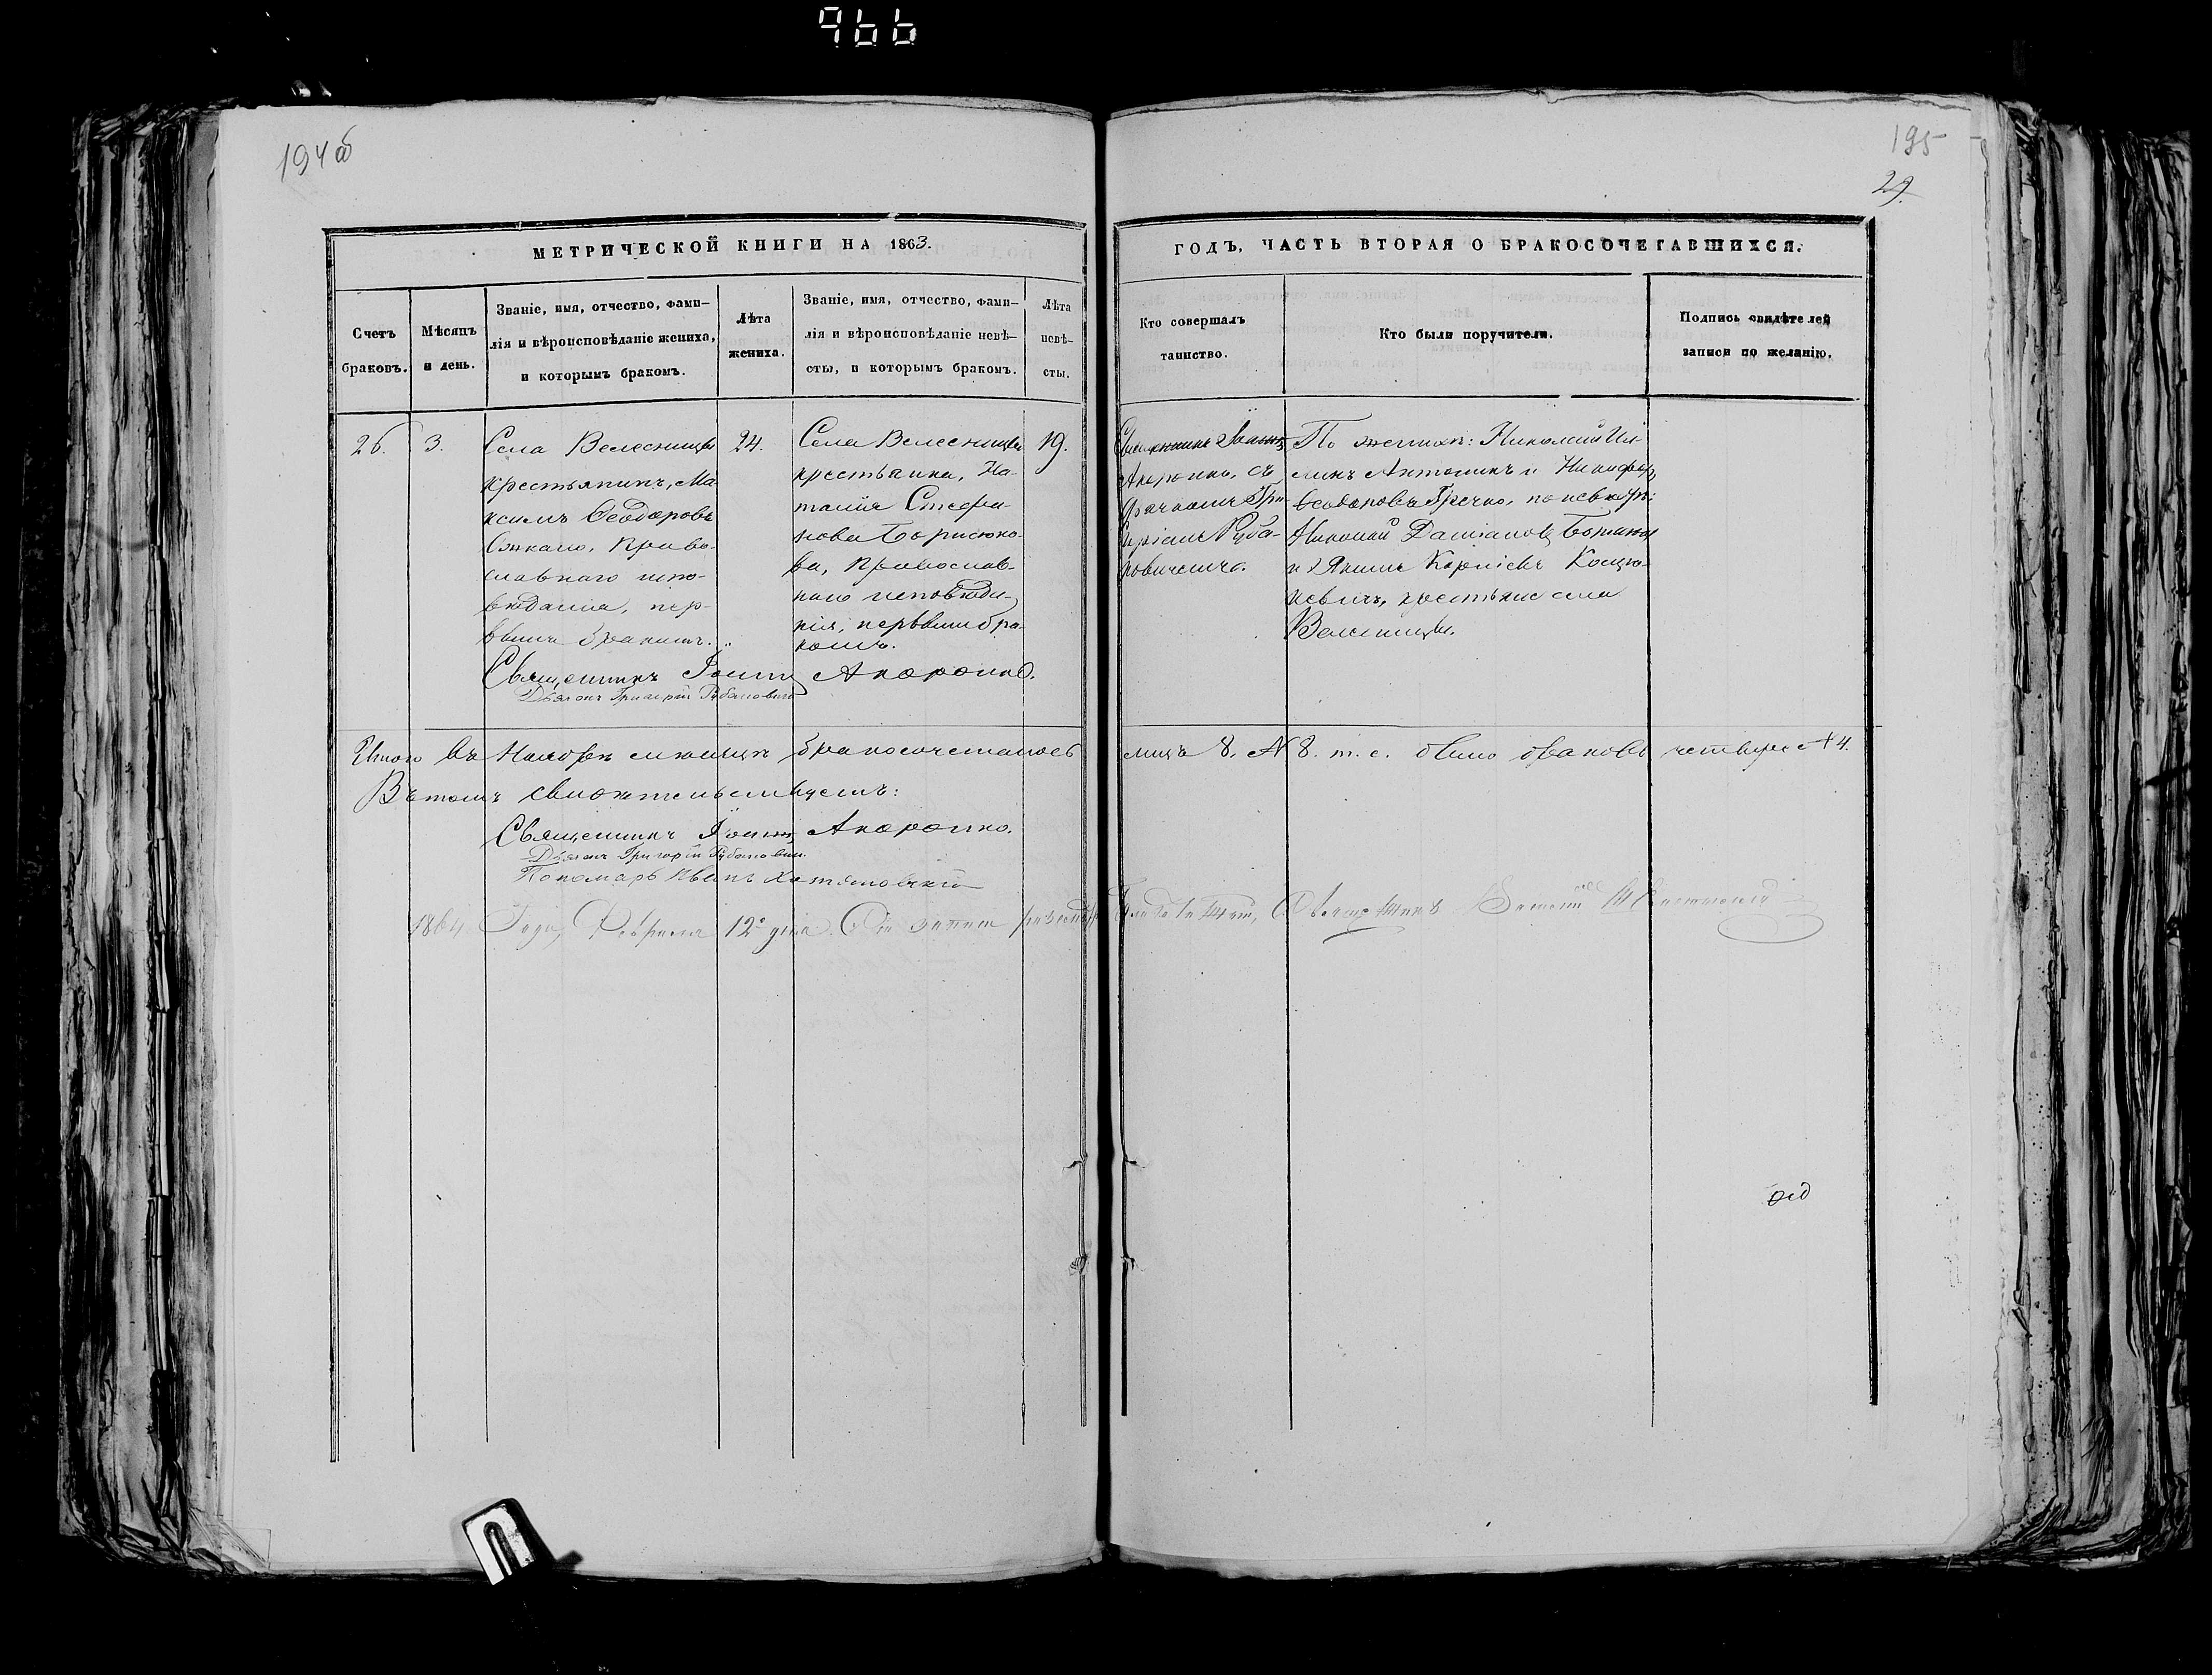 966
194 об
195
29.
МЕТРИЧЕСКОЙ КНИГИ НА 1863.
ГОДЪ, ЧАСТЬ ВТОРАЯ О БРАКОСОЧЕТАВШИХСЯ.
Счетъ
браковъ.
Мѣсяцъ
и день.
Званіе, имя, отчество, фами-
лія и вѣроисповѣданіе жениха,
и которымъ бракомъ.
Лѣта
жениха.
Званіе, имя, отчество, фами-
лія и вѣроисповѣданіе невѣ-
сты, и которымъ бракомъ.
Лѣта
невѣ-
сты.
Кто совершалъ
таинство.
Кто были поручители.
Подпись свидѣтелей
записи по желанію.
26.
3.
Села Велесницы
крестьянинъ, Ма-
ксимъ Ѳеодоровъ
Право-
славнаго испо-
вѣданія, пер-
вымъ бракомъ.
24.
Села Велесницы
крестьянка, На-
талія Стефа-
нова Борисюко-
ва, Православ-
наго исповѣда-
нія, первымъ бра-
комъ.
19.
Священникъ Іоаннъ
Акоронко, съ
Дьячкомъ Гри-
горіемъ Руба-
новичемъ.
По женихѣ: Николай
Антонюкъ и Никифоръ
Гречко, по невѣстѣ:
Николай Даміановъ
и Якимъ Корніевъ Коцю-
кевичъ, крестьяне села
Велесницы.
Священникъ Іоаннъ Акоронко.
Дьячокъ Григорій Рубановичъ
Итого въ Ноябрѣ мѣсяцѣ бракосочеталось
лицъ 8. № 8. т. е. было браковъ четыре № 4.
Въ томъ свидѣтельствуемъ:
Священникъ Іоаннъ Акоронко.
Дьячокъ Григорій Рубановичъ.
Пономарь Иванъ
1864 Года, Февраля 12го дня. Священникъ